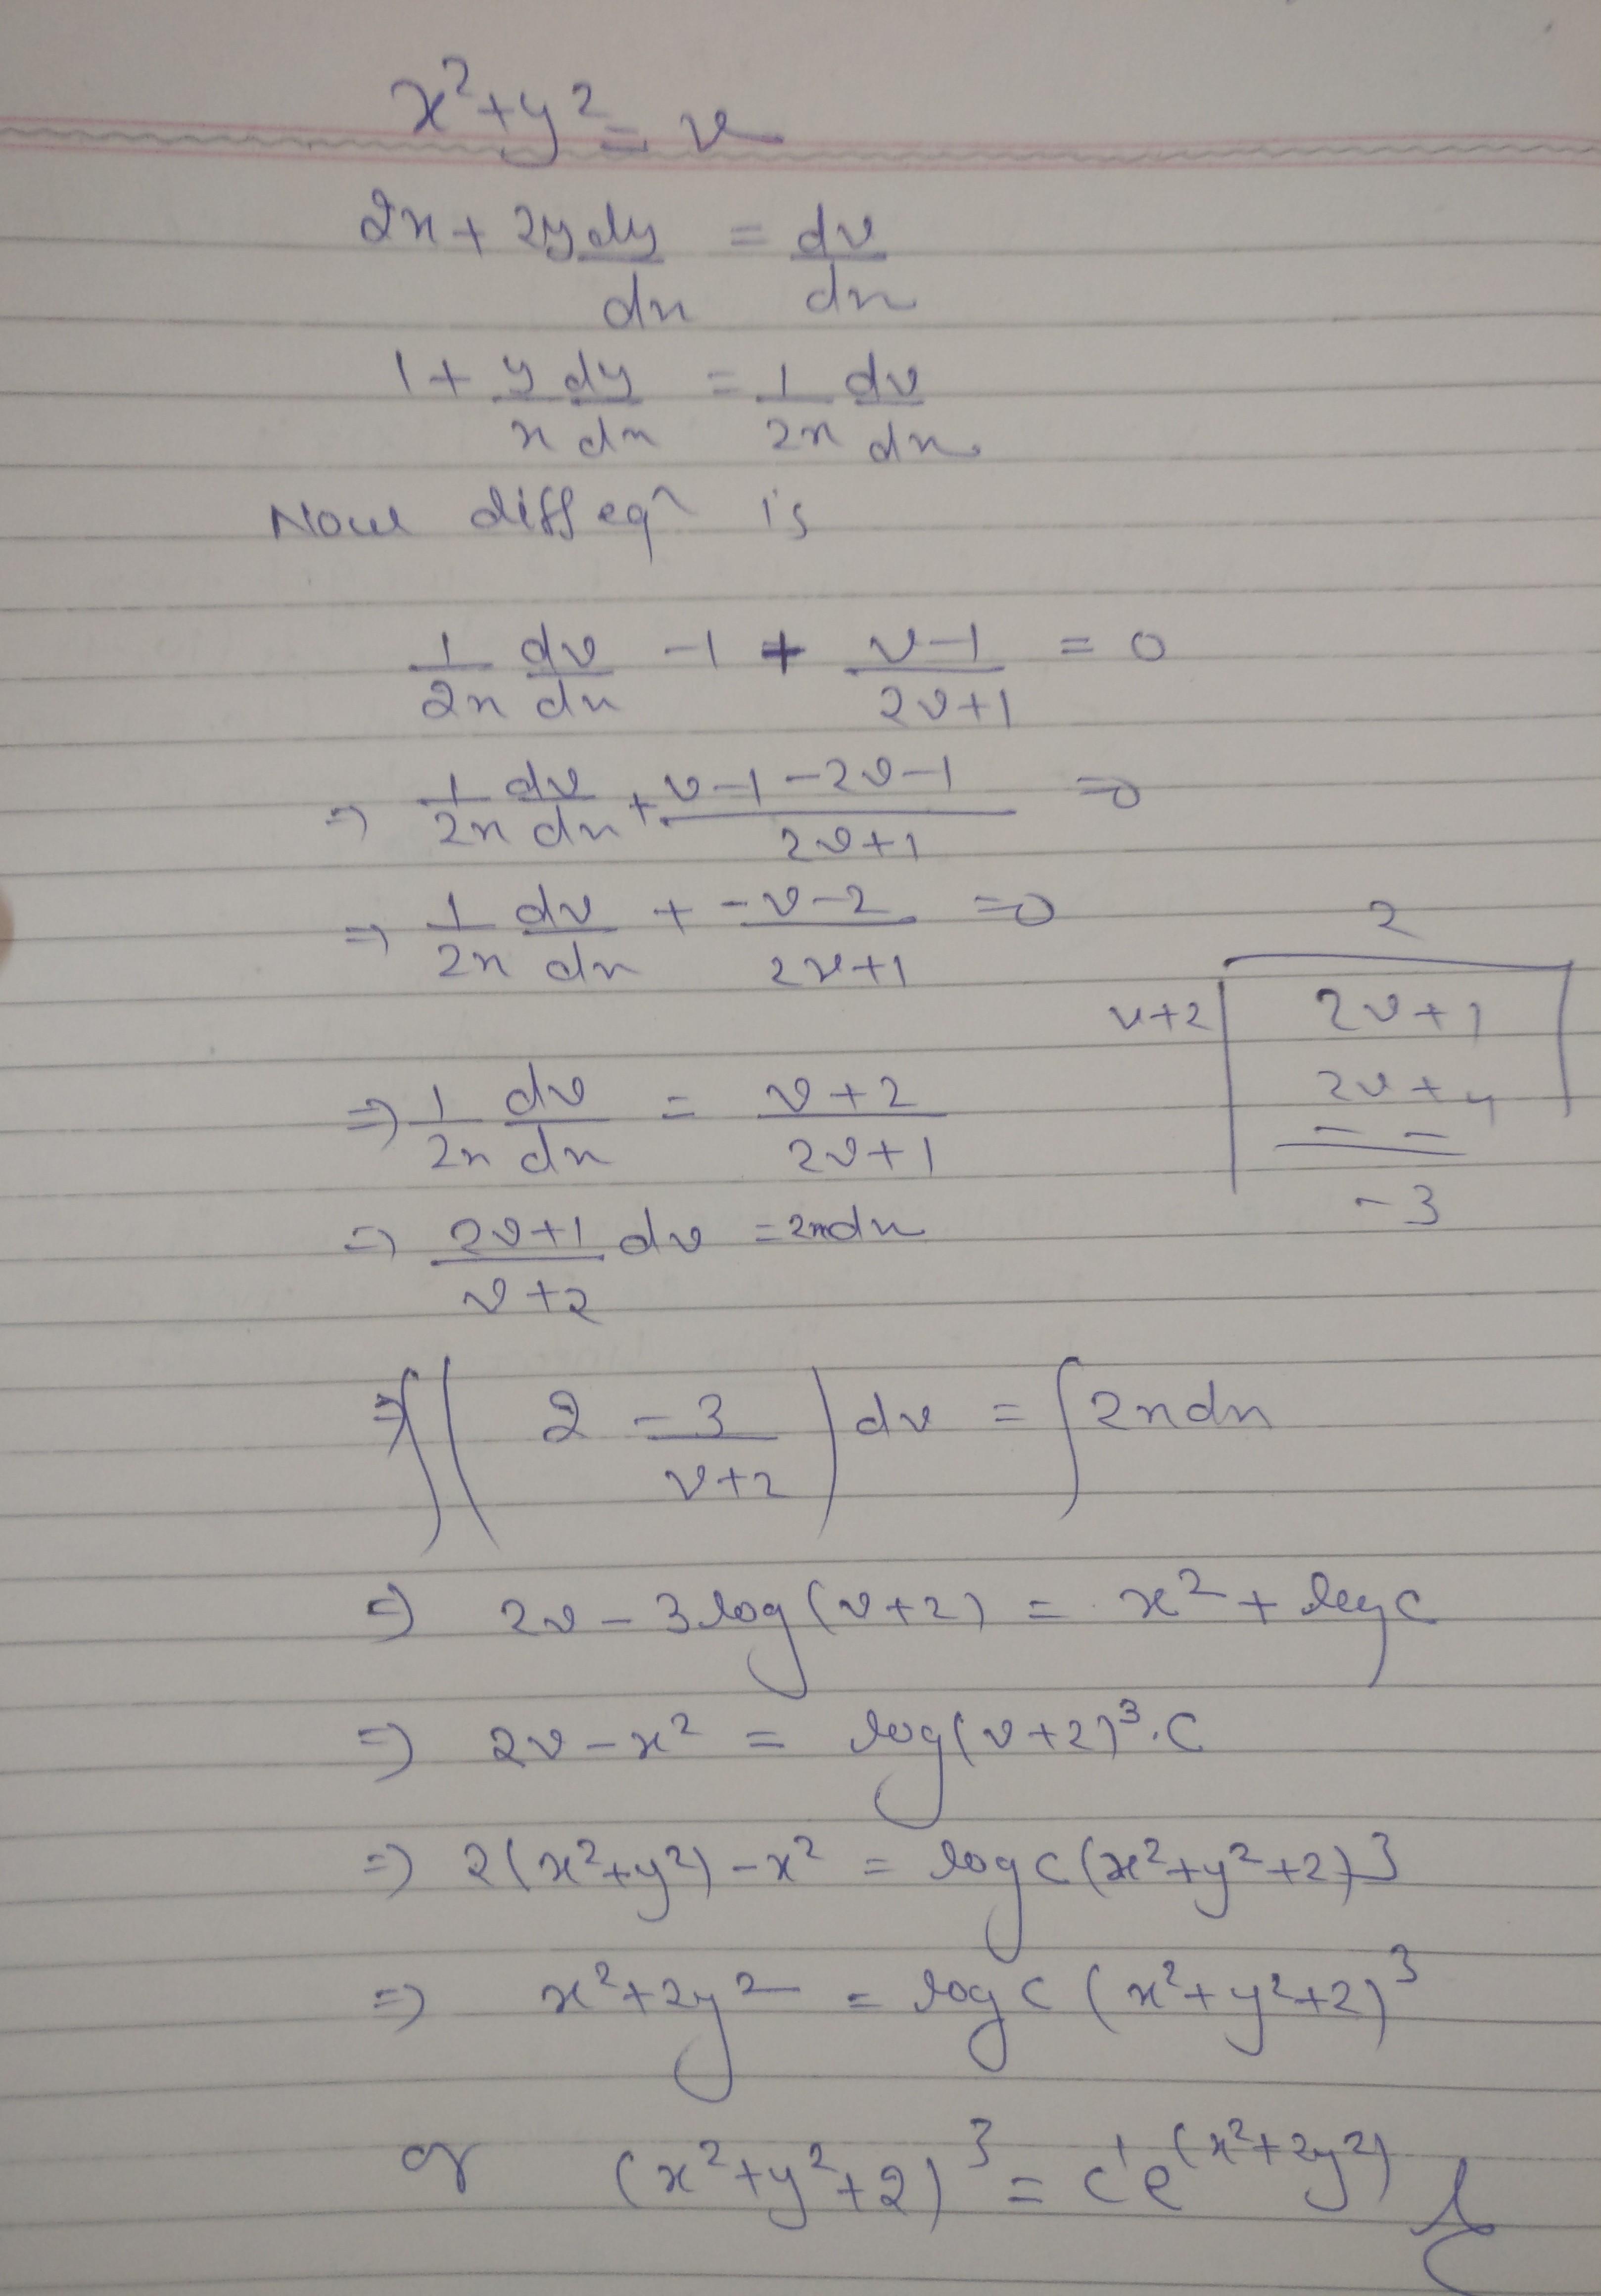 x²+y² = v
2x + 2y dy/dx = dv/dx
1 + y/x dy/dx = 1/2x dv/dx
Now diff eqⁿ is
1/2x dv/dx - 1 + v-1/2v+1 = 0
⇒ 1/2x dv/dx + v-1-2v-1/2v+1 = 0
⇒ 1/2x dv/dx + -v-2/2v+1 = 0
2
v+2 | 2v+1
2v+4
- -
-3
⇒ 1/2x dv/dx = v+2/2v+1
⇒ 2v+1/v+2 dv = 2xdx
⇒ ∫(2 - 3/v+2) dv = ∫2xdx
⇒ 2v - 3log(v+2) = x² + log c
⇒ 2v - x² = log(v+2)³.C
⇒ 2(x²+y²) - x² = log c(x²+y²+2)³
⇒ x²+2y² = log c (x²+y²+2)³
or (x²+y²+2)³ = c'e^(x²+2y²)